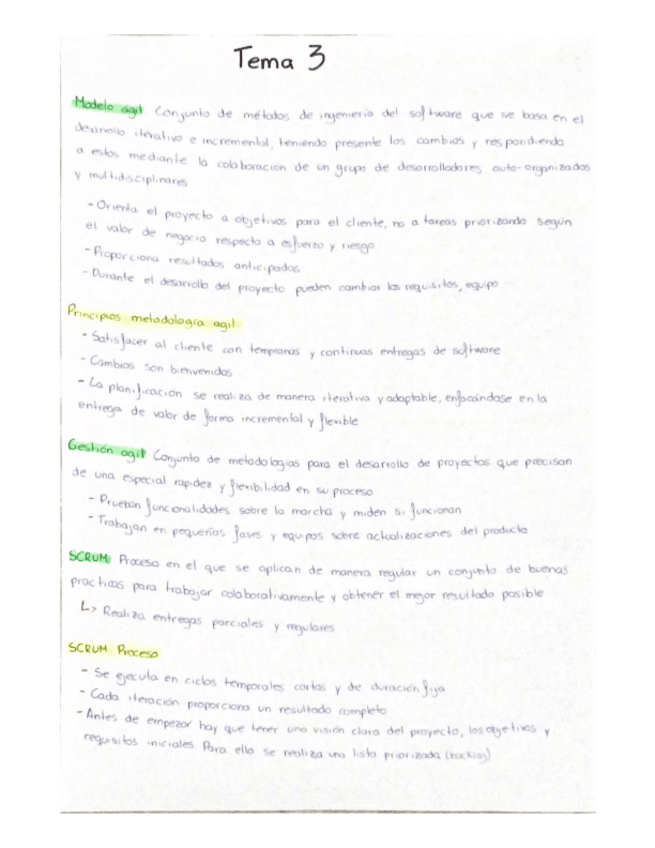 Tema 3
Modelo agil Conjunto de métodos de ingeniería del software que se basa en el
desarrollo iterativo e incremental, teniendo presente los cambios y respondiendo
a estos mediante la colaboración de un grupo de desarrolladores auto-organizados
y multidisciplinares
- Orienta el proyecto a objetivos para el cliente, no a tareas priorizando según
el valor de negocio respecto a esfuerzo y riesgo
- Proporciona resultados anticipados
- Durante el desarrollo del proyecto pueden cambiar los requisitos, equipo
Principios metodología agil
- Satisfacer al cliente con tempranas y continuas entregas de software
- Cambios son bienvenidos
- La planificación se realiza de manera iterativa y adaptable, enfocándose en la
entrega de valor de forma incremental y flexible
Gestión agil Conjunto de metodologías para el desarrollo de proyectos que precisan
de una especial rapidez y flexibilidad en su proceso
- Prueban funcionalidades sobre la marcha y miden si funcionan
- Trabajan en pequeñas fases y equipos sobre actualizaciones del producto
SCRUM Proceso en el que se aplican de manera regular un conjunto de buenas
practicas para trabajar colaborativamente y obtener el mejor resultado posible
↳ Realiza entregas parciales y regulares
SCRUM Proceso
- Se ejecuta en ciclos temporales cortos y de duración fija
- Cada iteración proporciona un resultado completo
- Antes de empezar hay que tener una visión clara del proyecto, los objetivos y
requisitos iniciales Para ello se realiza una lista priorizada (backlog)